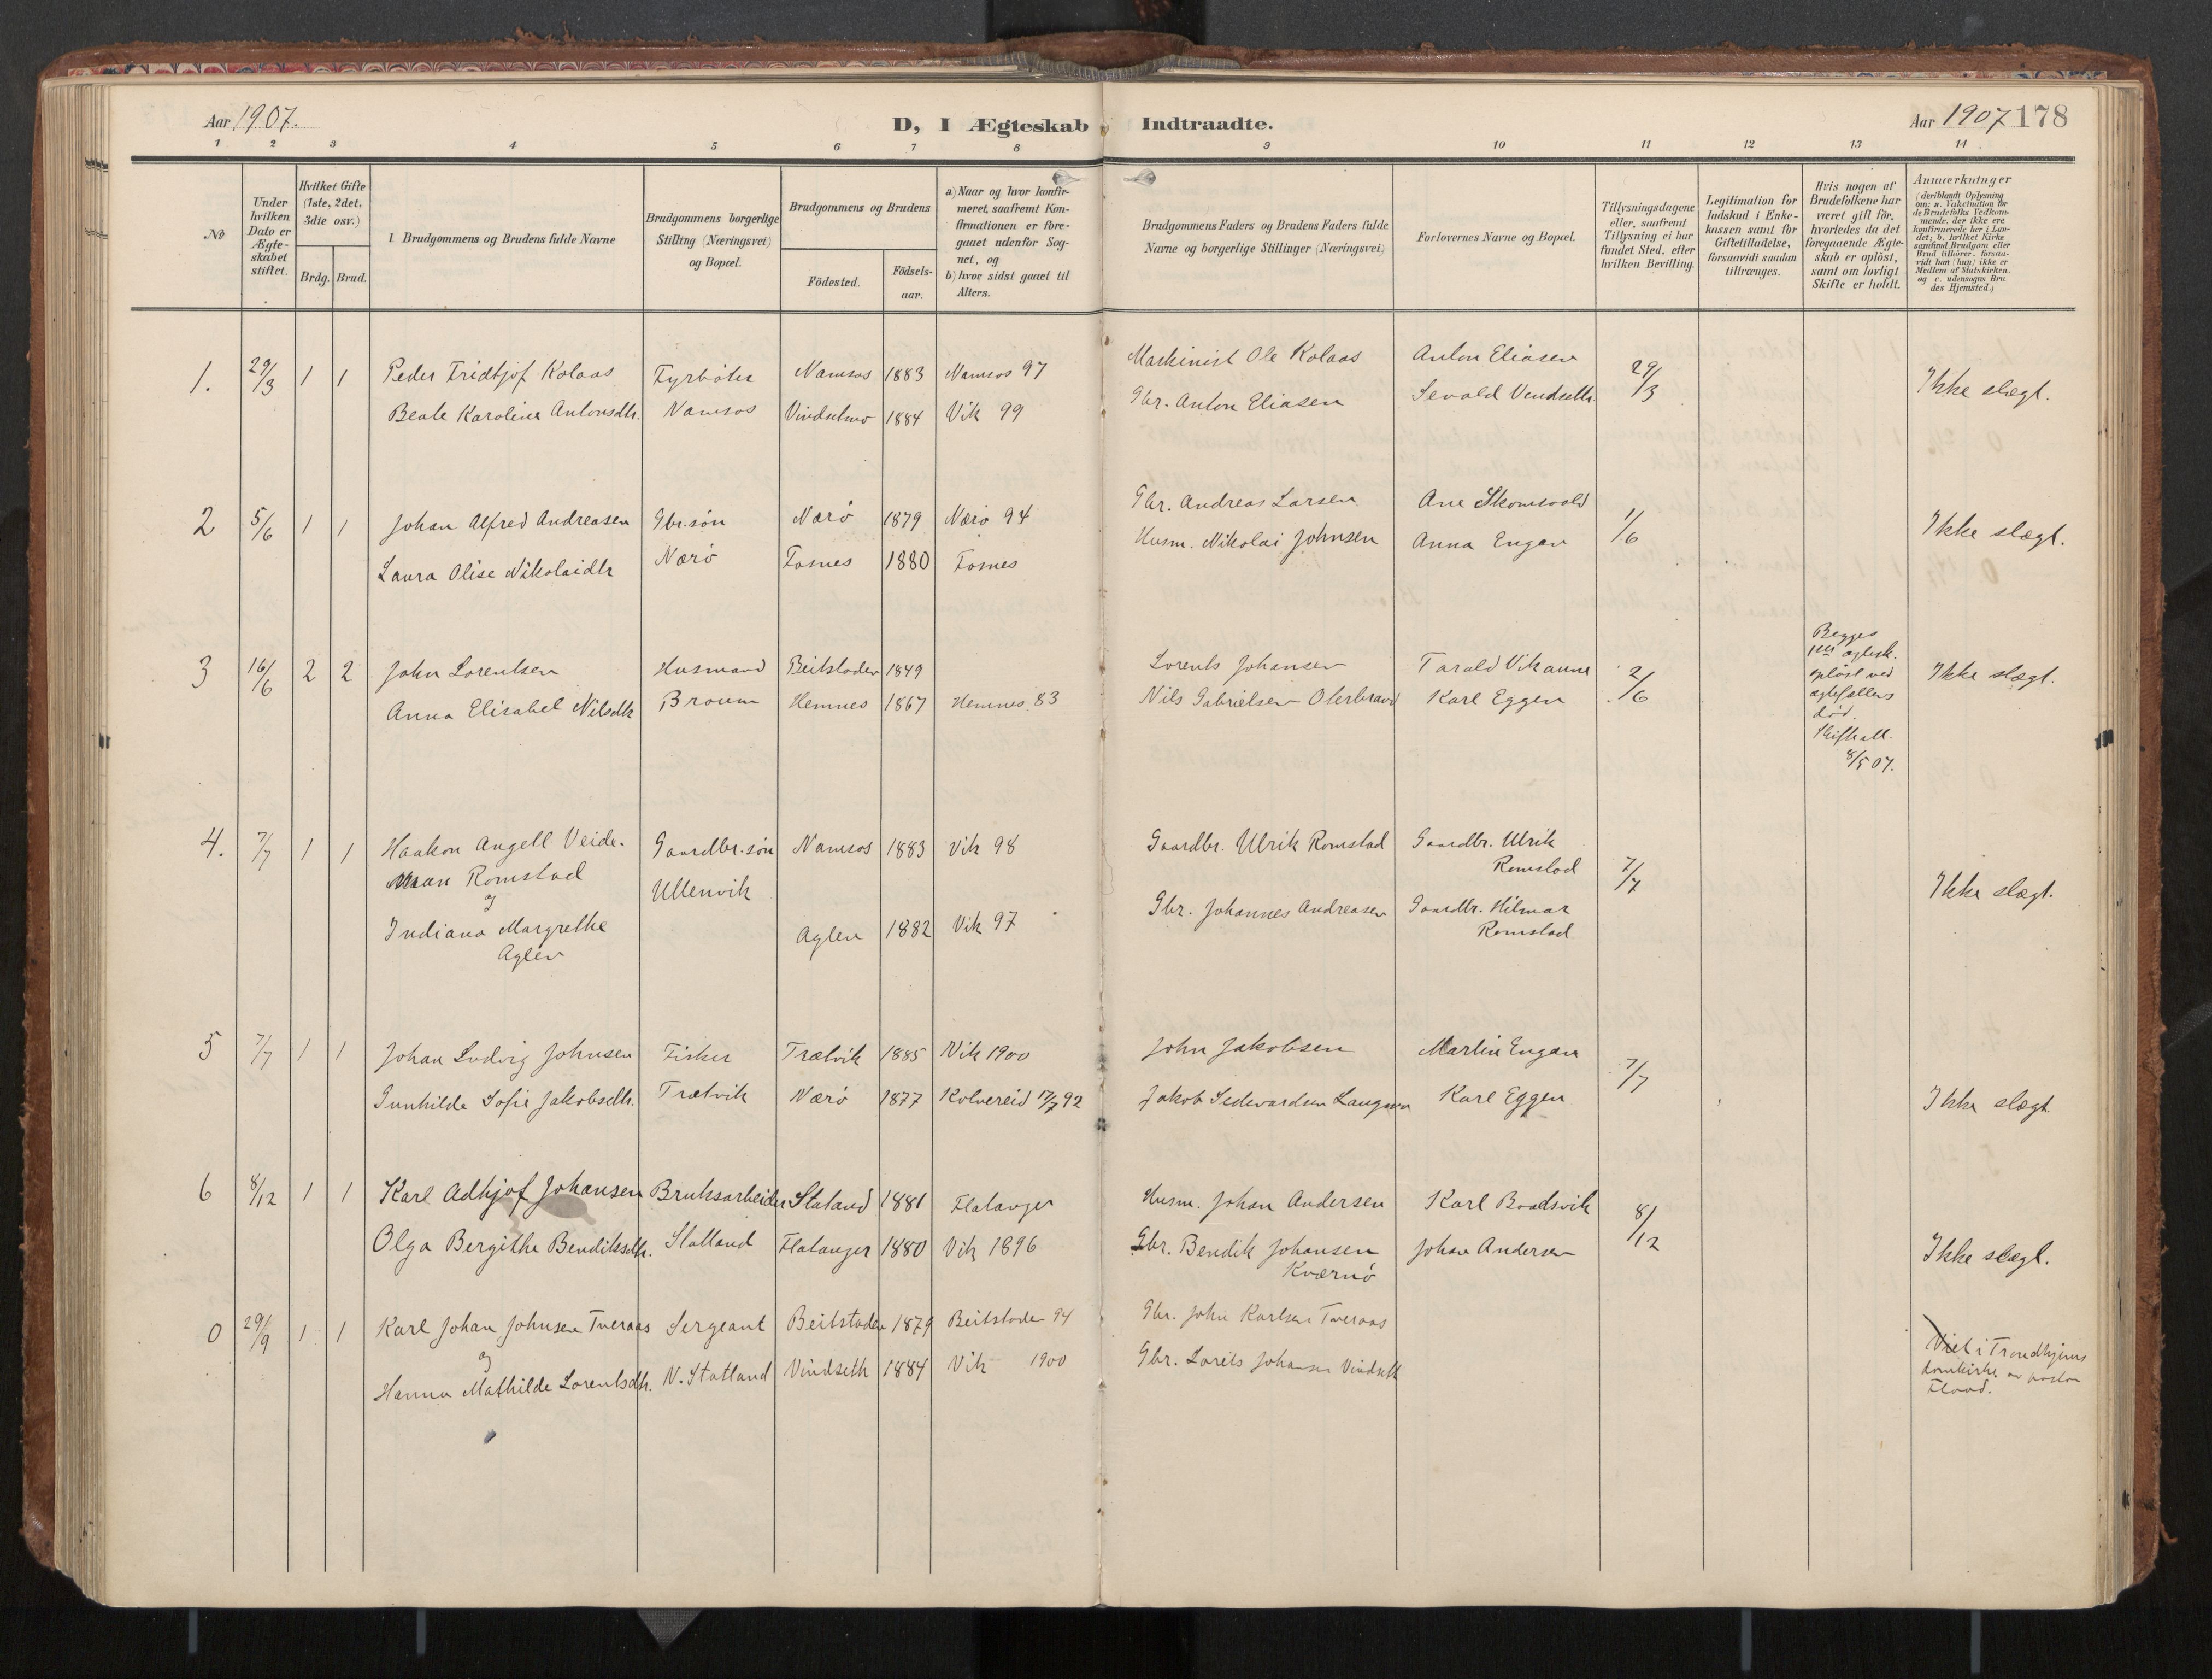 Aar 1907.
D, I Ægteskab Indtraadte.
Aar 1907 178
1 2 3 4 5 6 7 8 9 10 11 12 13 14
No
Under
hvilken
Dato er
Ægte-
skabet
stiftet.
Hvilket Gifte
(1ste, 2det,
3die osv.)
Brdg. Brud.
Brudgommens og Brudens fulde Navne
Brudgommens borgerlige
Stilling (Næringsvei)
og Bopæl.
Brudgommens og Brudens
Födested.
Födsels-
aar.
a) Naar og hvor konfir-
meret, saafremt Kon-
firmationen er fore-
gaaet udenfor Sog-
net, og
b) hvor sidst gaaet til
Alters.
Brudgommens Faders og Brudens Faders fulde
Navne og borgerlige Stillinger (Næringsvei)
Forlovernes Navne og Bopæl.
Tillysningsdagene
eller, saafremt
Tillysning ei har
fundet Sted, efter
hvilken Bevilling.
Legitimation for
Indskud i Enke-
kassen samt for
Giftetilladelse,
forsaavidt saadan
tiltrænges.
Hvis nogen af
Brudefolkene har
været gift før,
hvorledes da det
foregaaende Ægte-
skab er oplöst,
samt om lovligt
Skifte er holdt.
Anmærkninger
(deriblandt Oplysning
om: a. Vakcination for
de Brudefolks Vedkom-
mende, der ikke ere
konfirmerede her i Lan-
det; b. hvilket Kirke
samfund Brudgom eller
Brud tilhører, forsaa-
vidt han (hun) ikke er
Medlem af Statskirken
og c. udensogns Bru
des Hjemsted.)
1. 29/3 1 1 Peder Fridtjof Kolaas Fyrböter Namsos 1883 Namsos 97 Maskinist Ole Kolaas Anton Eliasen 29/3 Ikke slægt.
Beate Karoline Antonsdtr. Namsos Vindsetmo 1884 Vik 99 Gbr. Anton Eliasen Sevald Vindseth.
2 5/6 1 1 Johan Alfred Andreasen Gbr.søn Nærö 1879 Nærö 94 Gbr. Andreas Larsen Ane Skomsvold 1/6 Ikke slægt.
Laura Olise Nikolaidtr Nærö Fosnes 1880 Fosnes Husm. Nikolai Johnsen Anna Engan
3 16/6 2 2 John Lorentsen Husmand Beitstaden 1849 Lorents Johansen Tarald Vikaune 2/6 Ikke slægt.
Anna Elisabet Nilsdtr Braum Hemnes 1867 Hemnes 83 Nils Gabrielsen Oterbrand Karl Eggen
Begges
1ste ægtesk.
oplöst ved
ægtefællens
död.
Skifteatt.
8/5 07.
4. 7/7 1 1 Haakon Angell Veide- Gaardbr.søn Namsos 1883 Vik 98 Gaardbr. Ulrik Romstad Gaardbr. Ulrik
man Romstad Ullenvik Romstad 7/7 Ikke slægt.
og
Indiana Margrethe Aglen 1882 Vik 97 Gbr. Johannes Andreasen Gaardbr. Hilmar
Aglen Romstad
5 7/7 1 1 Johan Ludvig Johnsen Fisker Trætvik 1885 Vik 1900 John Jakobsen Martin Engan 7/7
Gunhilde Sofie Jakobsdtr. Trætvik Nærö 1877 Kolvereid 17/7 92 Jakob Sedevardsen Karl Eggen Ikke slægt
6 8/12 1 1 Karl Adtjof Johansen Bruksarbeider Statland 1881 Flatanger Husm. Johan Andersen Karl Baadsvik 8/12
Olga Bergithe Bendiksdtr. Statland Flatanger 1880 Vik 1896 Gbr. Bendik Johansen Johan Andersen Ikke slægt.
Kværnö
0 29/9 1 1 Karl Johan Johnsen Tveraas Sergeant Beitstaden 1879 Beitstaden 94 Gbr. John Karlsen Tveraas
og
Hanna Mathilde Lorentsdtr. N. Statland Vindseth 1884 Vik 1900 Gbr. Lorits Johansen Vindseth
Viet i Trondhjems
domkirke av pastor
Flood.